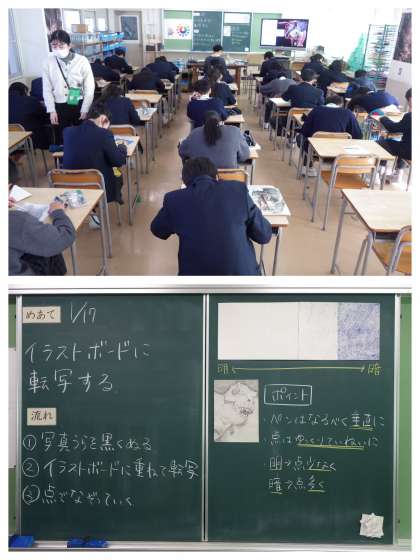 めあて
1/17
イラストボードに
転写する
流れ
①写真うらを黒くぬる
②イラストボードに重ねて転写
③点でなぞっていく
明
暗
ポイント
・ペンはなるべく垂直に
・点はゆっくりていねいに
・明→点少なく
暗→点多く